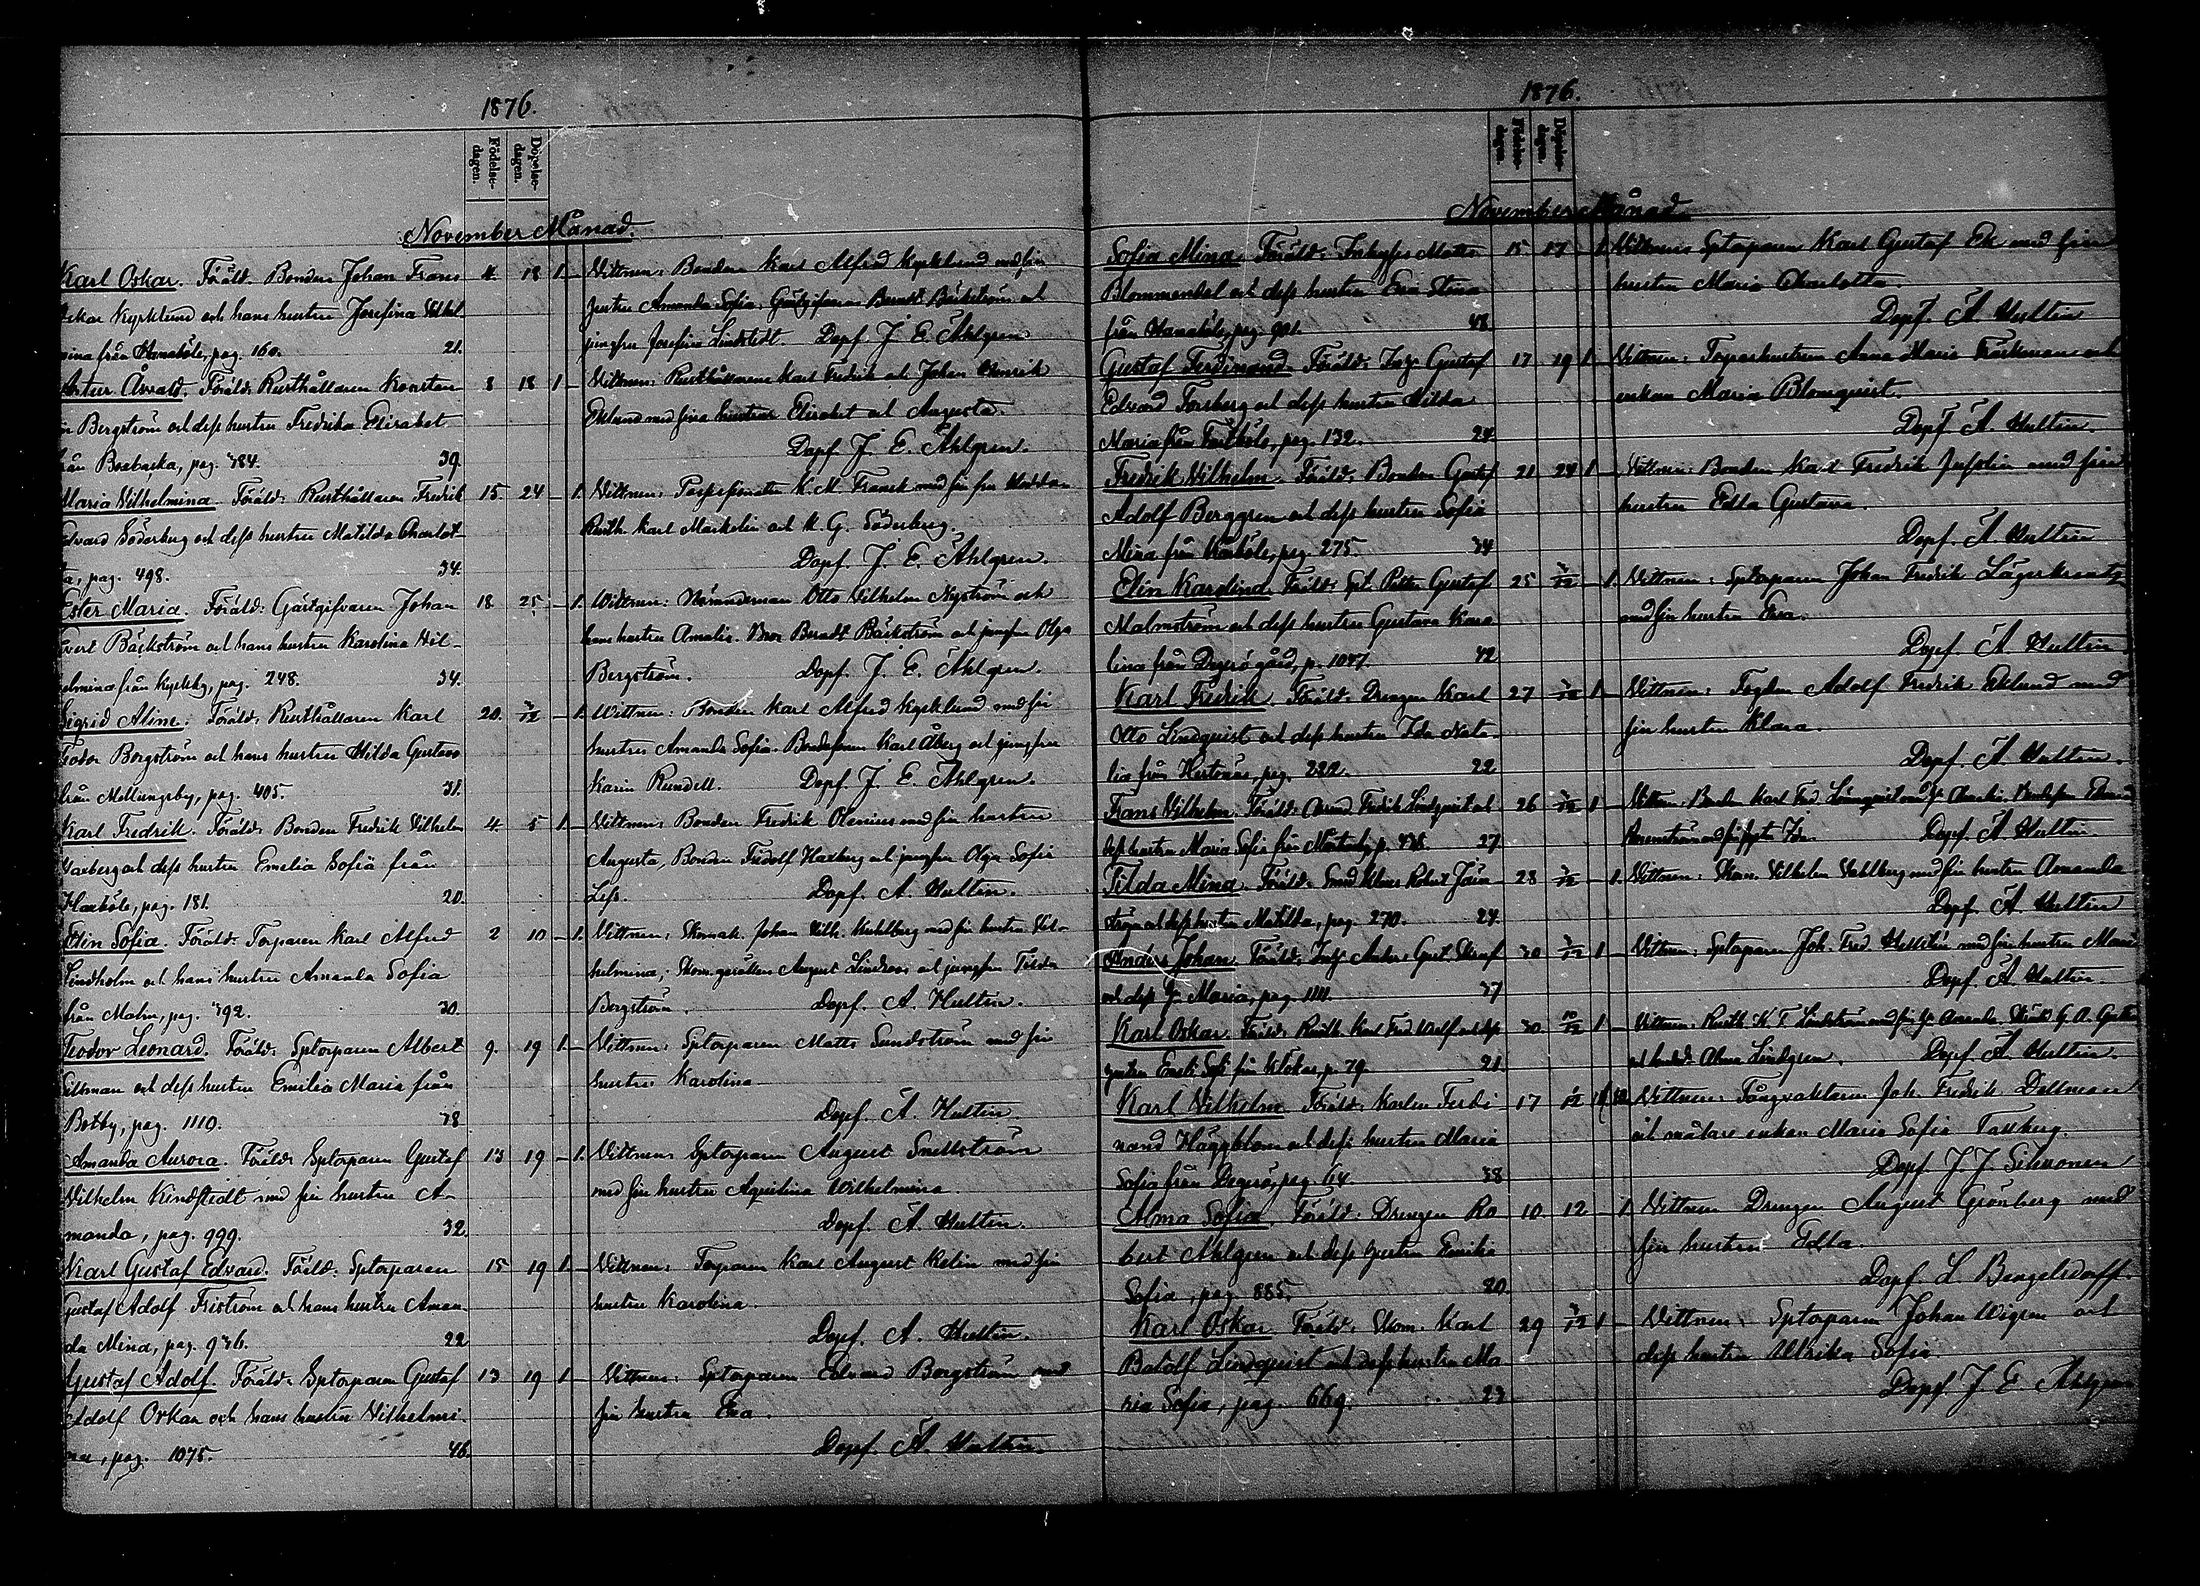 1876.
Födelse-dagen.
Döpelse-dagen.
November Månad.
Karl Oskar. Föräld. Bonden Johan Frans 4 18 1 — Vittnen: Bonden Karl Alfred Kyrklund med sin
Oskar Kyrklund och hans hustru Josefina Vilhel hustru Amanda Sofia, Gästgifvaren Berndt Bäckström och
mina från Hanaböle, pag. 160. 21. jungfru Josefina Lindstedt. Döpf. J. E. Ahlgren
Artur Åsvald. Föräld: Rusthållaren Konstan 8 18 1 — Vittnen: Rusthållarene Karl Fredrik och Johan Henrik
in Bergström och dess hustru Fredrika Elisabet Eklund med sina hustrur Elisabet och Augusta.
från Boxbacka, pag. 784. 39. Döpf. J. E. Ahlgren.
Maria Vilhelmina. Föräld: Rusthållaren Fredrik 15 24 — 1. Vittnen: K. M. Franck med sin fru
Edvard Söderberg och dess hustru Matilda Charlot- Rusth. Karl Markelin och K. G. Söderberg.
ta, pag. 498. 34. Döpf. J. E. Ahlgren.
Ester Maria. Föräld: Gästgifvaren Johan 18 25 — 1. Wittnen: Nämndeman Otto Vilhelm Nyström och
Evert Bäckström och hans hustru Karolina Vil- hans hustru Amalia. Bror Berndt Bäckström och jungfru Olga
helmina från Kyrkby, pag. 248. 34. Bergström. Döpf. J. E. Ahlgren.
Sigrid Aline: Föräld: Rusthållaren Karl 20. 3/12 — 1. Wittnen: Bonden Karl Alfred Kyrklund med sin
Teodor Borgström och hans hustru Hilda Gustava hustru Amanda Sofia. Bondesonen Karl Åberg och jungfru
från Mellungsby, pag. 405. 31. Karin Rundell. Döpf. J. E. Ahlgren.
Karl Fredrik. Föräld: Bonden Fredrik Vilhelm 4 5 1 — Vittnen: Bonden Fredrik Olenius med sin hustru
Haxberg och dess hustru Emelia Sofia från Augusta, Bonden Fridolf Haxberg och jungfru Olga Sofia
Haxböle, pag. 181. 20. Döpf. A. Hultin.
Elin Sofia. Föräld: Torparen Karl Alfred 2 10 — 1. Vittnen: Skomak. Johan Vilh. Kuhlberg med sin hustru Vil-
Lindholm och hans hustru Amanda Sofia helmina, Skom.gesällen August Lindroos och jungfru Tilda
från Malm, pag. 392. 30. Bergström. Döpf. A. Hultin.
Teodor Leonard. Föräld: Sptorparen Albert 9. 19 1 — Vittnen: Sptorparen Matts Sundström med sin
och dess hustru Emilia Maria från hustru Karolina
Botby, pag. 1110. 38 Döpf. A. Hultin.
Amanda Aurora. Föräld: Sptorparen Gustaf 13 19 — 1. Vittnen: Sptorparen August Snellström
Vilhelm Kindstedt med sin hustru A- med sin hustru Aquilina Wilhelmina
manda, pag. 999. 32. Döpf. A. Hultin.
Karl Gustaf Edvard. Föräld: Sptorparen 15 19 1 — Vittnen: Torparen Karl August Relin med sin
Gustaf Adolf Friström och hans hustru Aman- hustru Karolina.
da Mina, pag. 936. 22 Döpf. A. Hultin.
Gustaf Adolf. Föräld: Sptorparen Gustaf 13 19 1 — Vittnen: Sptorparen Edvard Borgström med
Adolf Orkan och hans hustru Vilhelmi- sin hustru Eva.
na, pag. 1075. 46. Döpf. A. Hultin.
1876.
Födelse-dagen.
Döpelse-dagen.
November Månad
Sofia Mina. Föräld: Inhyses Matts 15 17 — 1. Vittnen: Sptorparen Karl Gustaf Ek med sin
Blommendal och dess hustru Eva Stina hustru Maria Charlotta.
från Hanaböle, pag. 901. 48 Döpf. A Hultin
Gustaf Ferdinand. Föräld: Inh. Gustaf 17 19 1 — Vittnen: Torparhustrun Anna Maria och
Edvard Forsberg och dess hustru Hilda enkan Maria Blomquist.
Maria från Fastböle, pag. 132. 24 Döpf. A. Hultin.
Fredrik Vilhelm. Föräld: Bonden Gustaf 21 24 1 — Vittnen: Bonden Karl Fredrik Juslin med sin
Adolf Berggren och dess hustru Sofia hustru Edla Gustava.
Mina från pag. 275. 34 Döpf. A Hultin
Elin Karolina. Föräld: Spt. Petter Gustaf 25 3/12 — 1. Vittnen: Sptorparen Johan Fredrik Lägerkrantz
Malmström och dess hustru Gustava Karo med sin hustru Eva.
lina från Degerö gård, p. 1047. 42 Döpf. A Hultin
Karl Fredrik. Föräld: Drengen Karl 27 3/12 1 — Vittnen: Fogden Adolf Fredrik Eklund med
Otto Lindquist och dess hustru Ida Nata sin hustru Klara.
lia från Hertonäs, pag. 222. 22 Döpf. A. Hultin.
Frans Vilhelm. Föräld: Arend. Fredrik Lindquist och 26 3/12 1 — Vittnen: Bonden Karl Fred. Lönnquist med h. Amalia. Bondeson Edvard
dess hustru Maria Sofia från Mårtensby p. 27 med sin Ida. Döpf. A. Hultin
Tilda Mina. Föräld: Smed Robert Jern 28 3/12 — 1. Vittnen: Skom. Vilhelm Kuhlberg med sin hustru Amanda
ström och dess hustru Matilda, pag. 270. 24 Döpf. A. Hultin
Anders Johan. Föräld: Inh. Anders Gust. 30 3/12 1 — Vittnen: Sptorparen Joh. Fred. Hellstén med sin hustru Maria
och dess h. Maria, pag. 1111. 37 Döpf. A. Hultin.
Karl Oskar. Föräld: Rusth. Karl Fred. och dess 30 10/12 1 — Vittnen: Rusth. K. F. Lindström med sin h. Amanda.
hustru Sofi från Klokas, p. 79. 21. Alma Lindgren. Döpf. A. Hultin.
Karl Vilhelm. Föräld: Karlen Ferdi 17 Vittnen: Fångvaktaren Joh. Fredrik Dellman
nand Häggblom och dess hustru Maria och målare enkan Maria Sofia Tallberg.
Sofia från Degerö, pag. 64 38 Döpf. J. J. Sihvonen
Alma Sofia. Föräld: Drengen Ro 10. 12 — 1 Vittnen: Drengen August Grönberg med
bert Ahlgren och dess hustru Emilia sin hustru Edla.
Sofia, pag. 885. 20 Döpf. L Bengelsdorff.
Karl Oskar. Föräld: Skom. Karl 29 3/12 1 — Vittnen: Sptorparen Johan Wigren och
Batolf Lindquist och dess hustru Ma dess hustru Ulrika Sofia
ria Sofia, pag. 669. 23 Döpf. J E Ahlgren